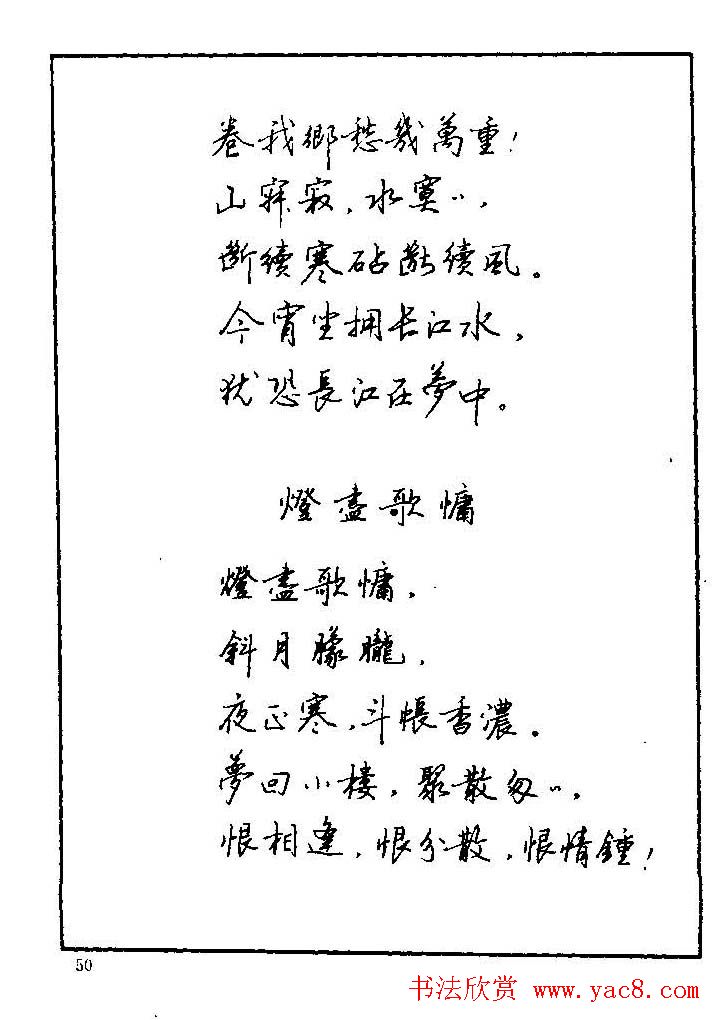 卷我鄉愁幾萬重！
山寂寂，水冥〻，
斷續寒砧斷續風。
今宵坐拥长江水，
犹恐長江在夢中。
燈盡歌慵
燈盡歌慵，
斜月朦朧，
夜正寒，斗帳香濃。
夢回小楼，聚散匆〻，
恨相逢，恨分散，恨情鍾！
50
书法欣赏 www.yac8.com